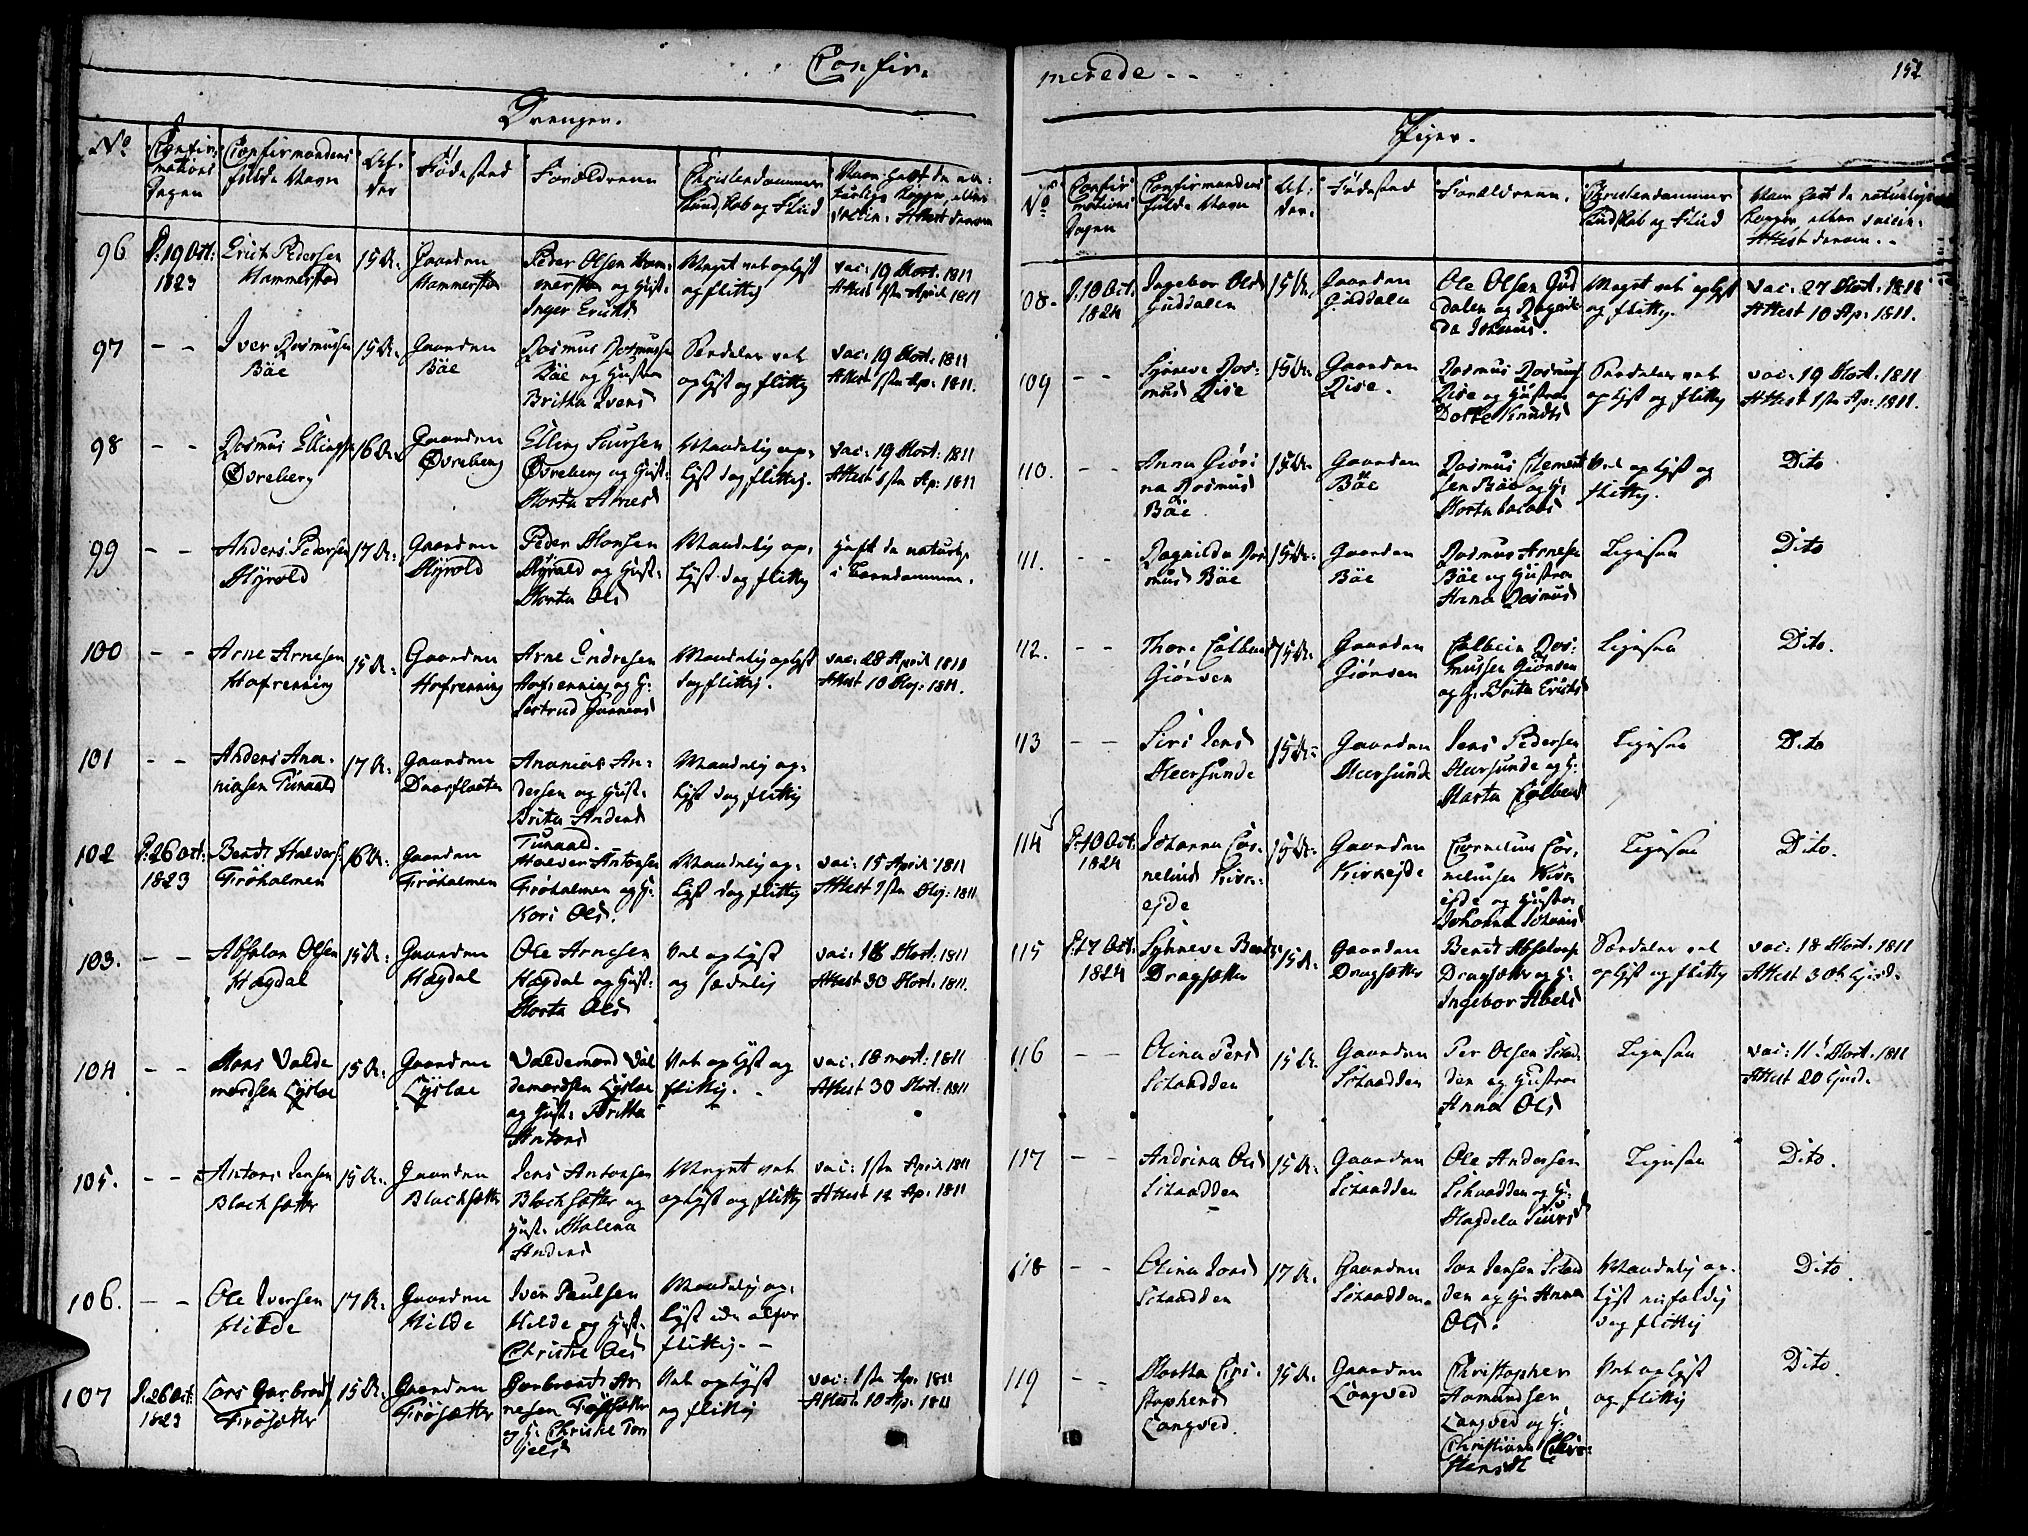 Confir-
merede--
152
Drenger.
Piger.
No
Confir-
mations
Dagen
Confirmandens
fulde Navn
Al-
der
Fødested
Forældrene
Christendommes
Kundskab og Flid
96
D: 19 Oct:
1823
Erick Pedersen
Hammerstad
15 A:
Gaarden
Peder Olsen Ham-
og Hust:
Inger Ericks
Meget vel oplyst
og flittig
vac: 19 Mart: 1811
Attest 1ste April 1811
97
- -
Iver Rasmussen
Böe
15 A:
Gaarden
Böe
Rasmus Rasmussen
Böe og Hustru
Britha Ivers
Særdeles vel
oplyst og flittig
vac: 19 Mart: 1811
Attest 1ste Ap: 1811.
98
- -
Rasmus Ellings
Øvreberg
16 A:
Gaarden
Øvreberg
Elling
Øvreberg og Hust:
Marta
Maadelig op-
lyst dog flittig.
vac: 19 Mart: 1811
Attest 1ste Ap: 1811
99
- -
Anders Pedersen
Myrold
17 A:
Gaarden
Myrold
Peder Monsen
Myrold og Hust:
Marta Ols
Maadelig op-
lyst dog flittig
havt de naturlige
i Barndommen.
100
- -
Arne Arnesen
15 A:
Gaarden
Arne Endresen
og H:
Maadelig oplyst
dog flittig.
vac: 28 April 1811
Attest 10 Maj: 1811.
101
- -
Anders Ana-
niasen
17 A:
Gaarden
Ananias An-
dersen og Hust:
Brita Anders
Maadelig op-
lyst dog flittig
102
D: 26 Oct:
1823
Bendt Halvors
Frøholmen
16 A:
Gaarden
Frøholmen
Halver Antonsen
Frøholmen og H:
Kari Ols.
Maadelig op-
lyst dog flittig
vac: 15 April 1811
Attest 1ste Maj: 1811
103.
- -
Absalon Olsen
Hagdal
15 A:
Gaarden
Hagdal
Ole Arnesen
Hagdal og Hust:
Marta Ols
Vel oplyst
og sædelig
vac: 18 Mart: 1811
Attest 30 Mart: 1811.
104
- -
Mons Valde
mordsen
15 A:
Gaarden
Valdemord Val
demordsen
og Hust: Britha
Antons
Vel oplyst og
flittig.
vac: 18 mart: 1811
Attest 30 Mart: 1811
105.
- -
Antoni Jensen
Blachsætter
15 A:
Gaarden
Blachsætter
Jens Antonsen
Blachsætter og
Hust: Malena
Anders
Meget vel
oplyst og flittig
vac: 1ste April 1811
Attest 12 Ap: 1811
106.
- -
Ole Iversen
Hilde
17 A:
Gaarden
Hilde
Iver Paulsen
Hilde og Hust:
Christie Ols
Maadelig op-
flittig.-
107
D: 26 Oct:
1823
Lars Garbrands
Frøsætter
15 A:
Gaarden
Frøsætter
Garbrand Ar
nesen Frøsætter
og H: Christie Tor
Vel oplyst
og flittig
vac: 1ste Ap: 1811
Attest 10 Ap: 1811
No
Confir
mations
Dagen
Confirmandens
fulde Navn
Al:
der.
Fødested
Forældrene.
Christendommes
Kundskab og Flid
Attest derom.-
108.
D: 10 Oct:
1824
Ingebor Ols
Guddalen
15 A:
Gaarden
Guddalen
Ole Olsen Gud
dalen og
Meget vel oplyst
og flittig.
vac: 27 Mart: 1811
Attest 10 Ap: 1811.
109
- -
Synneve Ras-
mus
15 A:
Gaarden
Rasmus
og Hustru
Dorte Knudts
Særdeles vel
oplyst og flittig
vac: 19 Mart: 1811
Attest 1ste Ap: 1811.
110.
- -
Anna
na Rasmus
Böe.
15 A:
Gaarden
Böe
Rasmus Clement
sen Böe og H:
Marta
Vel oplyst og
flittig.
Dito
111.
- -
Ragnilda Ras
mus Böe
15 A:
Gaarden
Böe
Rasmus Arnesen
Böe og Hustru
Anna Rasmus
Ligesaa
Dito
112.
- -
Thore Colbens
Giørven
15 A:
Gaarden
Giørven
Colbein Ras-
mussen Giørven
og H: Brita Ericks
Ligesaa
Dito.
113
- -
Siri Jens
15 A:
Gaarden
Jens Pedersen
og H:
Marta Colbens
Ligesaa
Dito
114
D: 10 Oct:
1824
Johanna Cor-
nelius Kirk-
ejde
15 A:
Gaarden
Kirkejde
Cornelius Cor-
neliusen Kirk-
ejde og Hustru
Johanna
Ligesaa
Dito.
115
D: 17 Oct:
1824
Synneve Bendts
Dragsætter
15 A:
Gaarden
Dragsætter
Bendt Absalons
Dragsætter og H:
Ingebor Abels
Særdeles vel
oplyst og flittig
vac: 18 Mart: 1811
Attest 30te
116
- -
Olina Pers
Schaadden
15 A:
Gaarden
Schaadden
Per Olsen Schaad
den og Hustru
Anna Ols
Ligesaa
vac: 11 Mart: 1811
Attest 20
117
- -
Andrina Ols
Schaadden
15 A:
Gaarden
Schaadden
Ole Andersen
Schaadden og H:
Magdela
Ligesaa
Dito.
118
- -
Olina Jons
Schaadden
17 A:
Gaarden
Schaadden.
Jon Jensen Schaad
den og H: Anna
Ols.
Maadelig op-
lyst
dog flittig
Dito.
119
- -
Martha Chri-
stophers
Langved.
15 A:
Gaarden
Langved
Christopher
Aamundsen
Langved og H:
Christiana
Vel oplyst
og flittig
Dito.